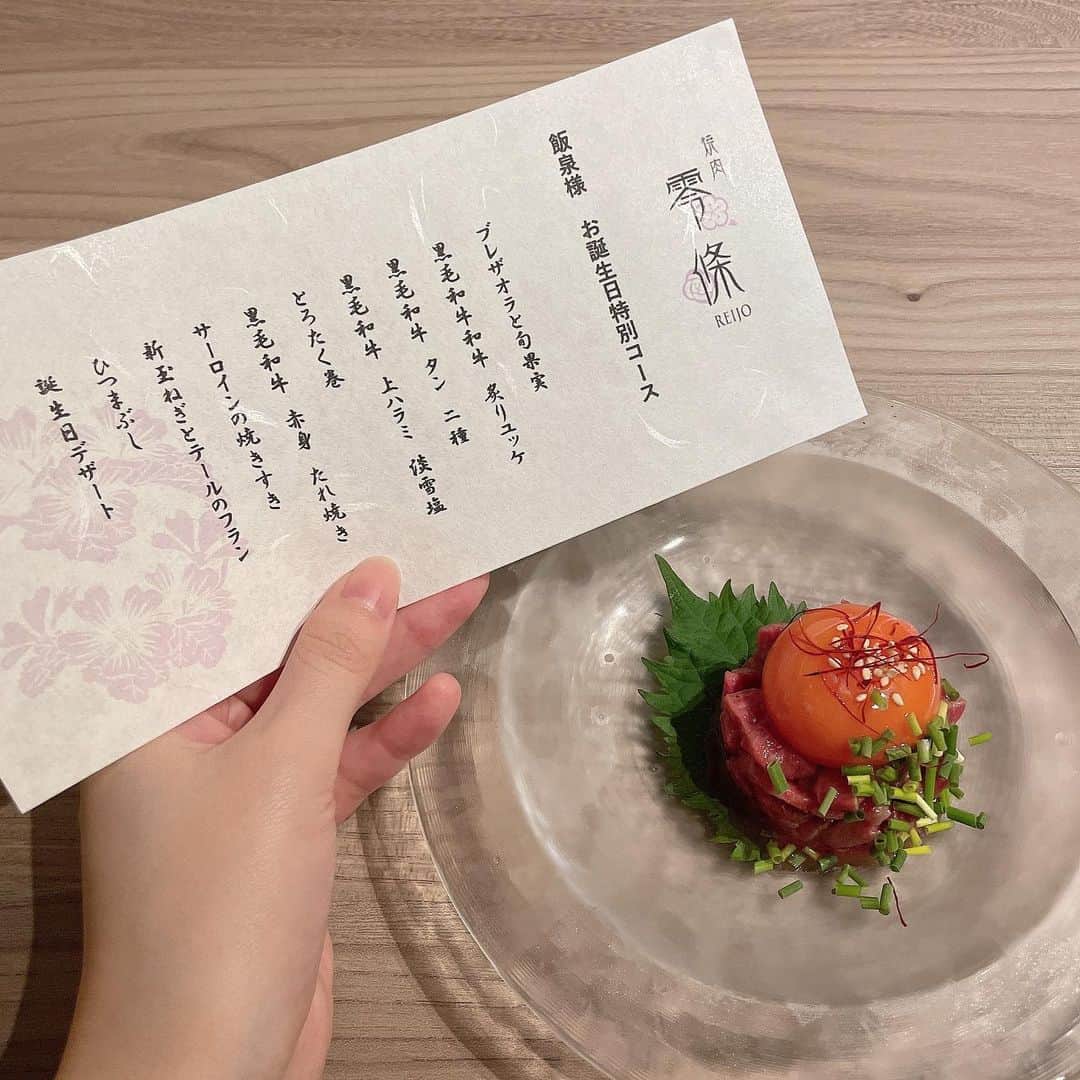 焼肉
零條
REIJO
飯泉様 お誕生日特別コース
ブレザオラと旬果実
黒毛和牛和牛 炙りユッケ
黒毛和牛 タン 二種
黒毛和牛 上ハラミ 淡雪塩
とろたく巻
黒毛和牛 赤身 たれ焼き
サーロインの焼きすき
新玉ねぎとテールのフラン
ひつまぶし
誕生日デザート